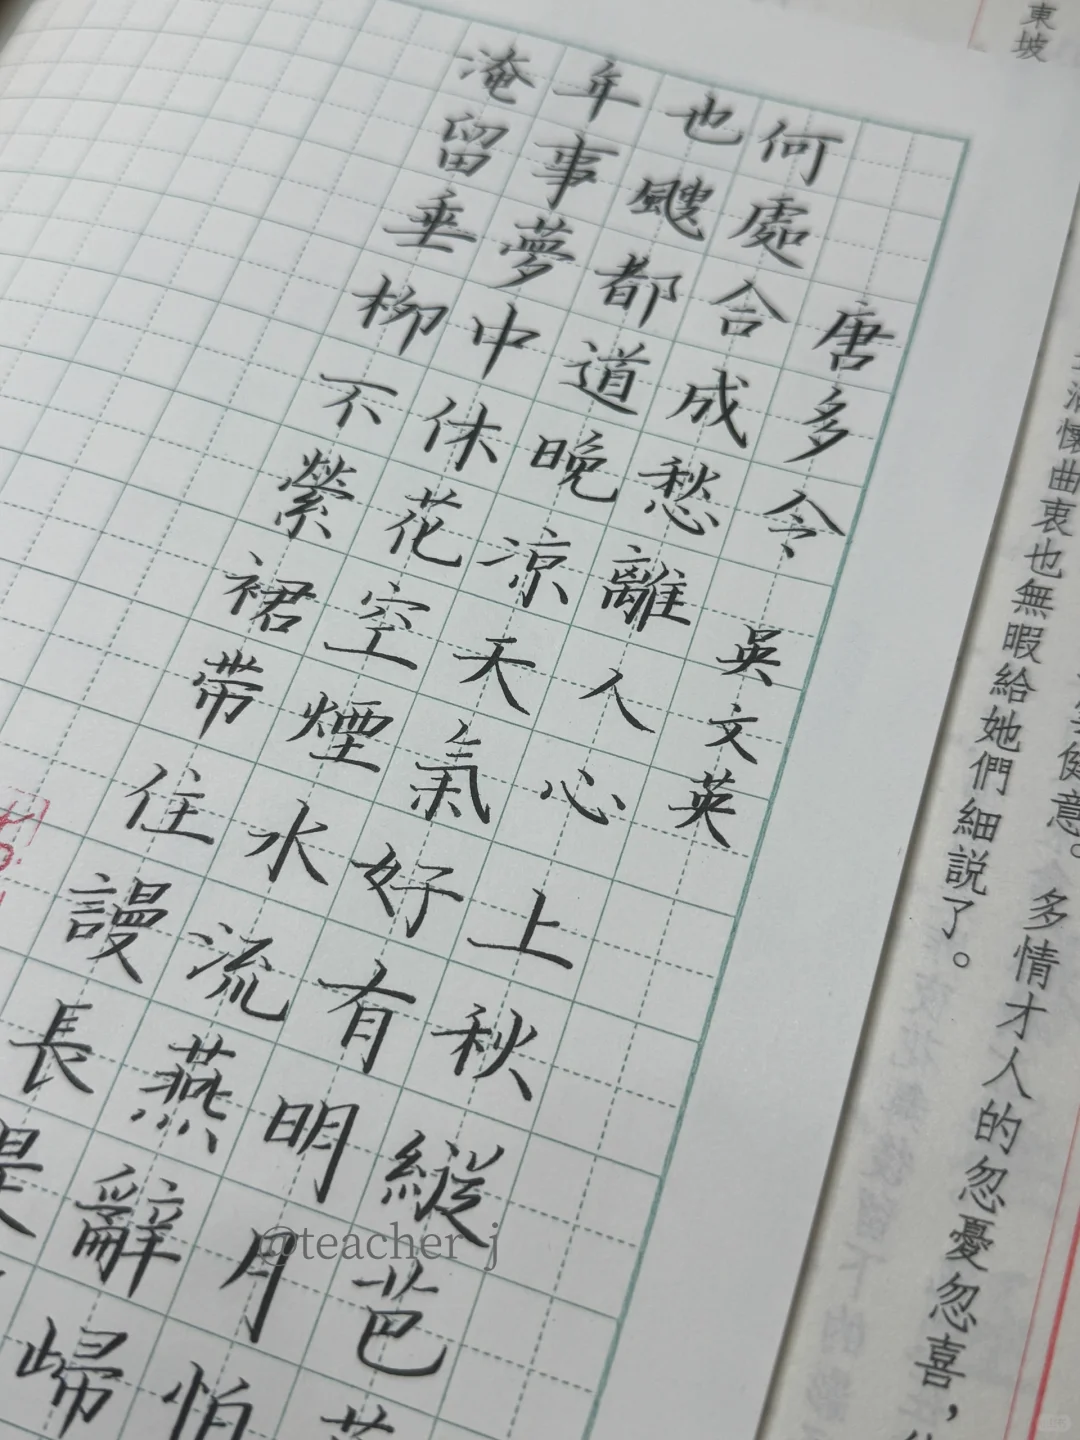 健意。多情才人的忽憂忽喜，
滿懷曲衷也無暇給她們細說了。
東坡
唐多令 吳文英
何處合成愁離人心上秋縱芭
也颼都道晚凉天氣好有明月怕
年事夢中休花空煙水流燕辭歸
淹留垂柳不縈裙带住謾長是
@teacher_j